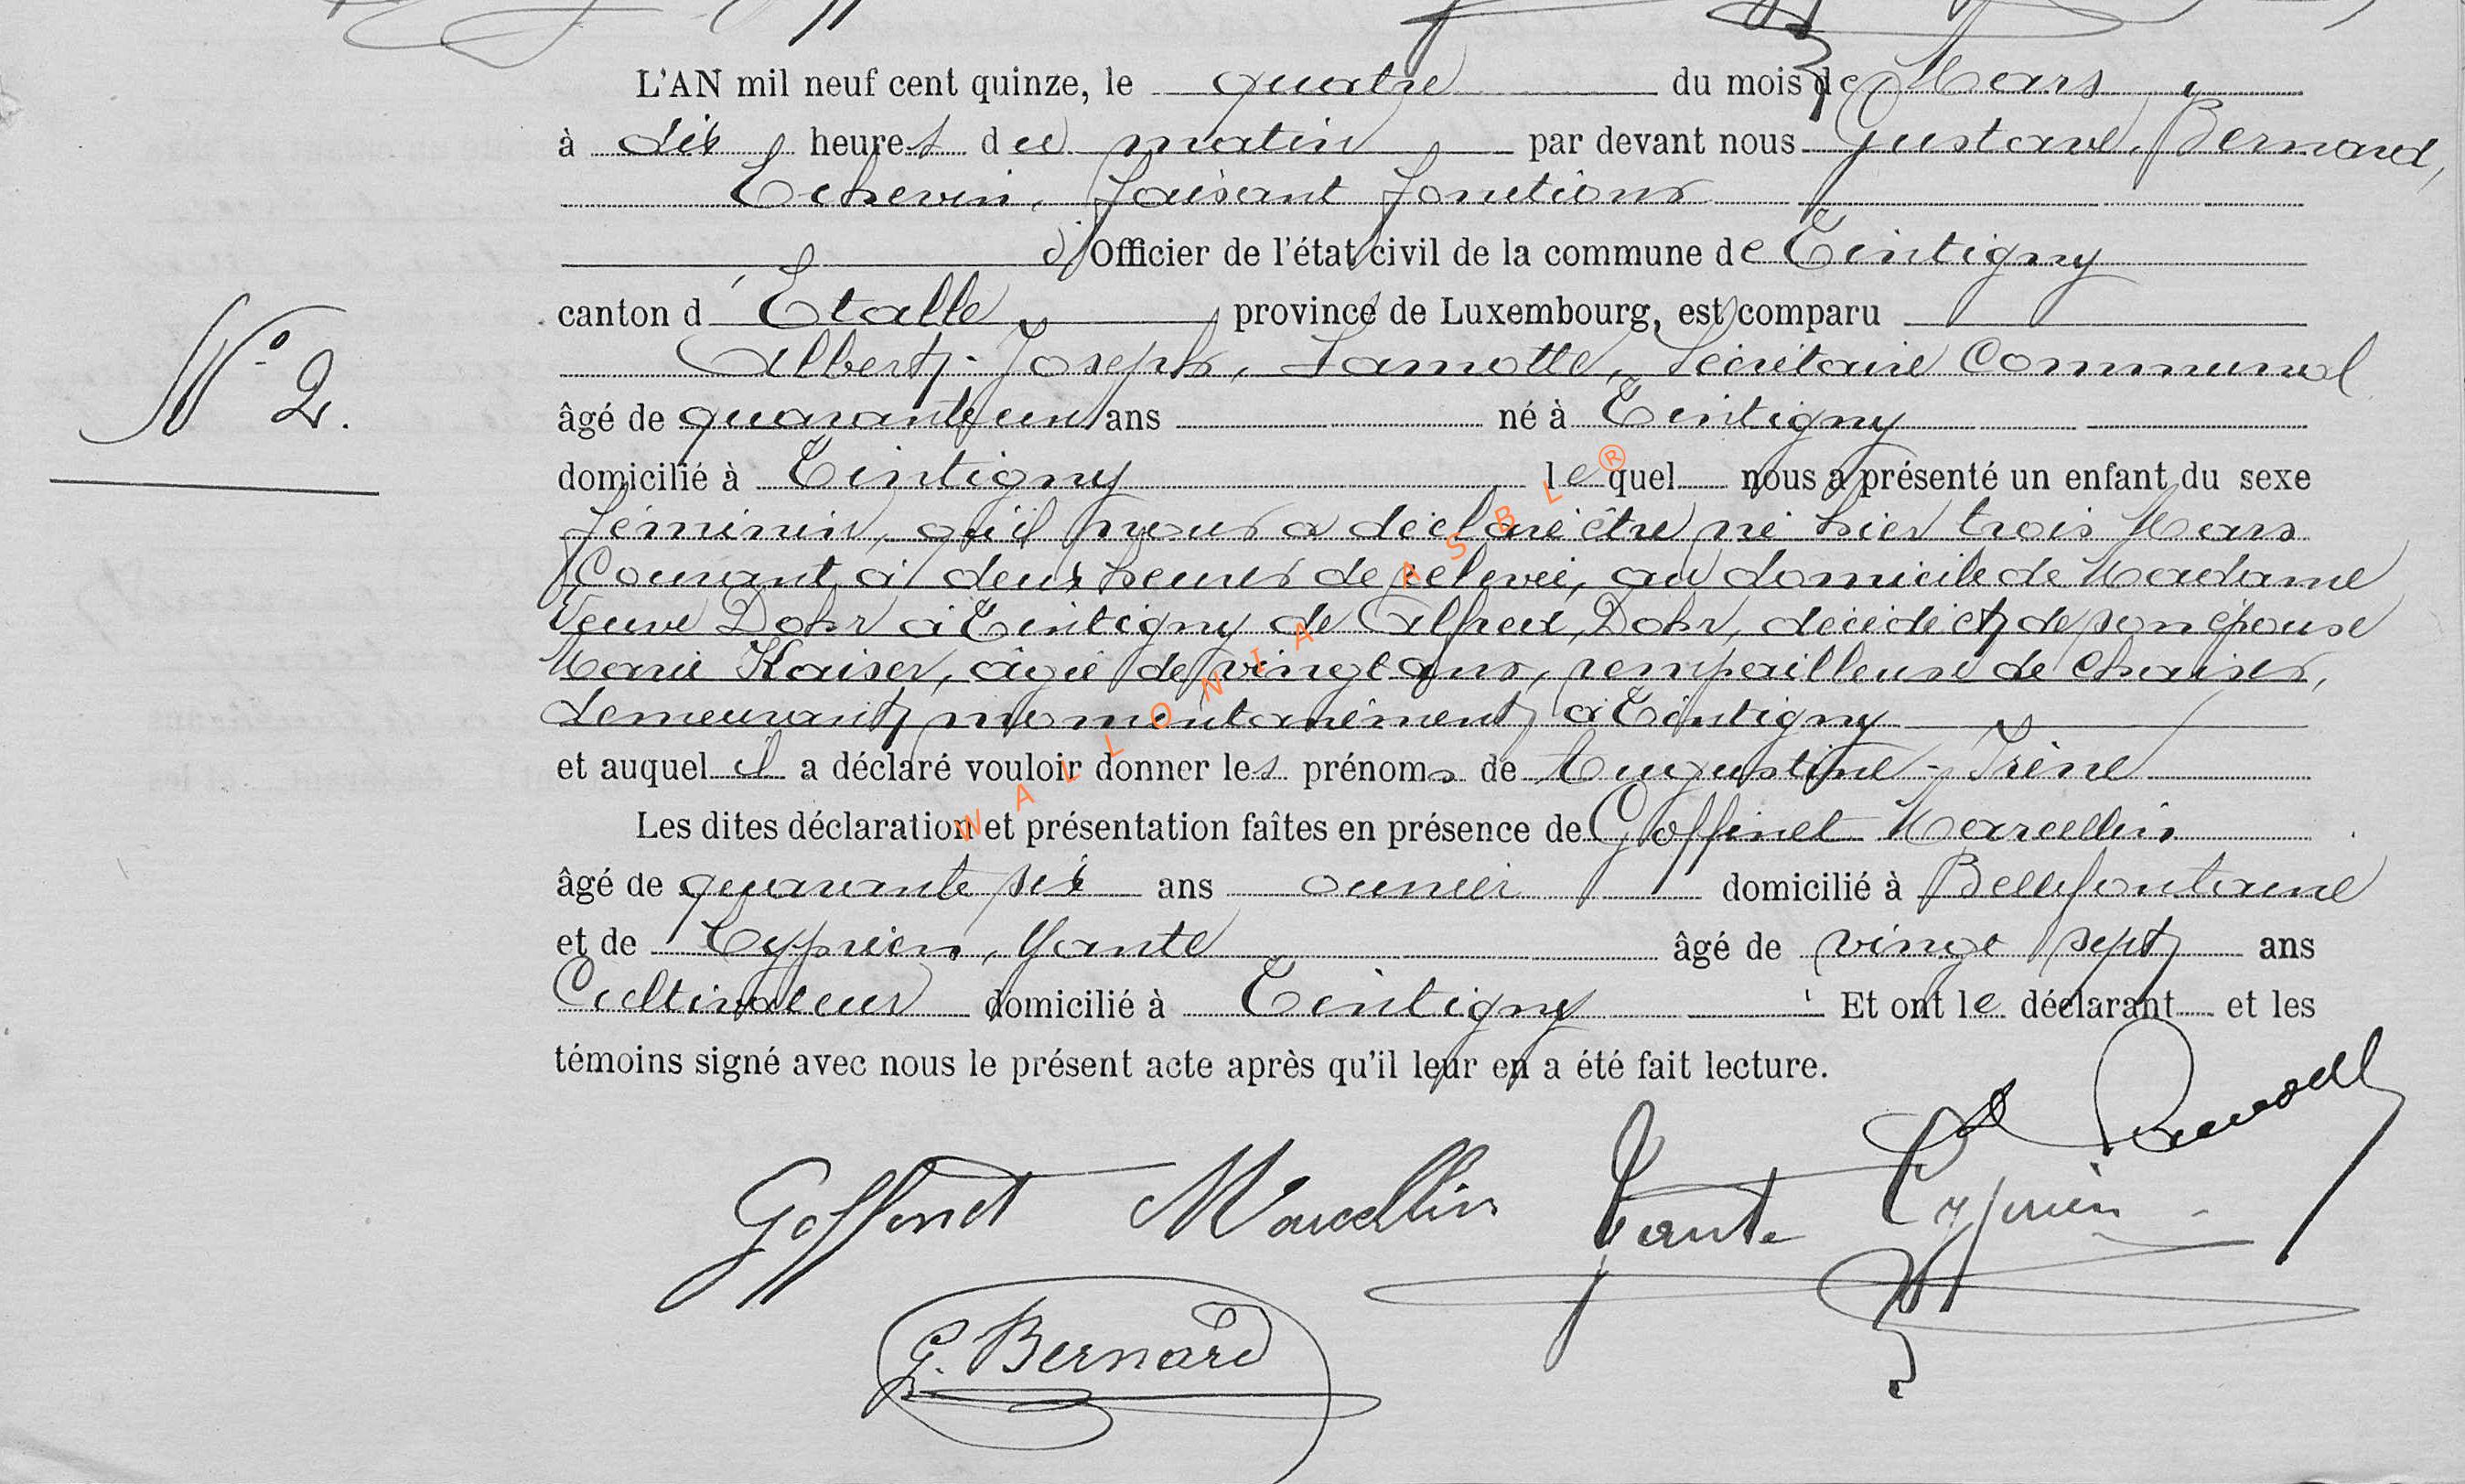 L'AN mil neuf cent quinze, le quatre du mois de Mars,
à dix heures du matin par devant nous Gustave Bernard,
Echevin, faisant fonctions
d'Officier de l'état civil de la commune de Tintigny
canton d'Etalle province de Luxembourg, est comparu
N° 2.
Albert-Joseph, Lamotte, Secrétaire Communal
âgé de quarante un ans né à Tintigny
domicilié à Tintigny lequel nous a présenté un enfant du sexe
féminin, qu'il nous a déclaré être né hier trois Mars
Courant à deux heures de relevée, au domicile de Madame
Veuve Dohr à Tintigny de Alfred, Dohr, décédé et de son épouse
Marie Kaiser, âgée de vingt ans, rempailleuse de chaises,
demeurant momentanément à Tintigny
et auquel il a déclaré vouloir donner les prénoms de Augustine-Irène
Les dites déclaration et présentation faîtes en présence de Goffinet Marcellin
âgé de quarante six ans ouvrier domicilié à Bellefontaine
et de Cyprien, Yante âgé de vingt sept ans
Cultivateur domicilié à Tintigny Et ont le déclarant et les
témoins signé avec nous le présent acte après qu'il leur en a été fait lecture.
Goffinet Marcellin Yante Cyprien
G. Bernard
WALLONIA ASBL ®